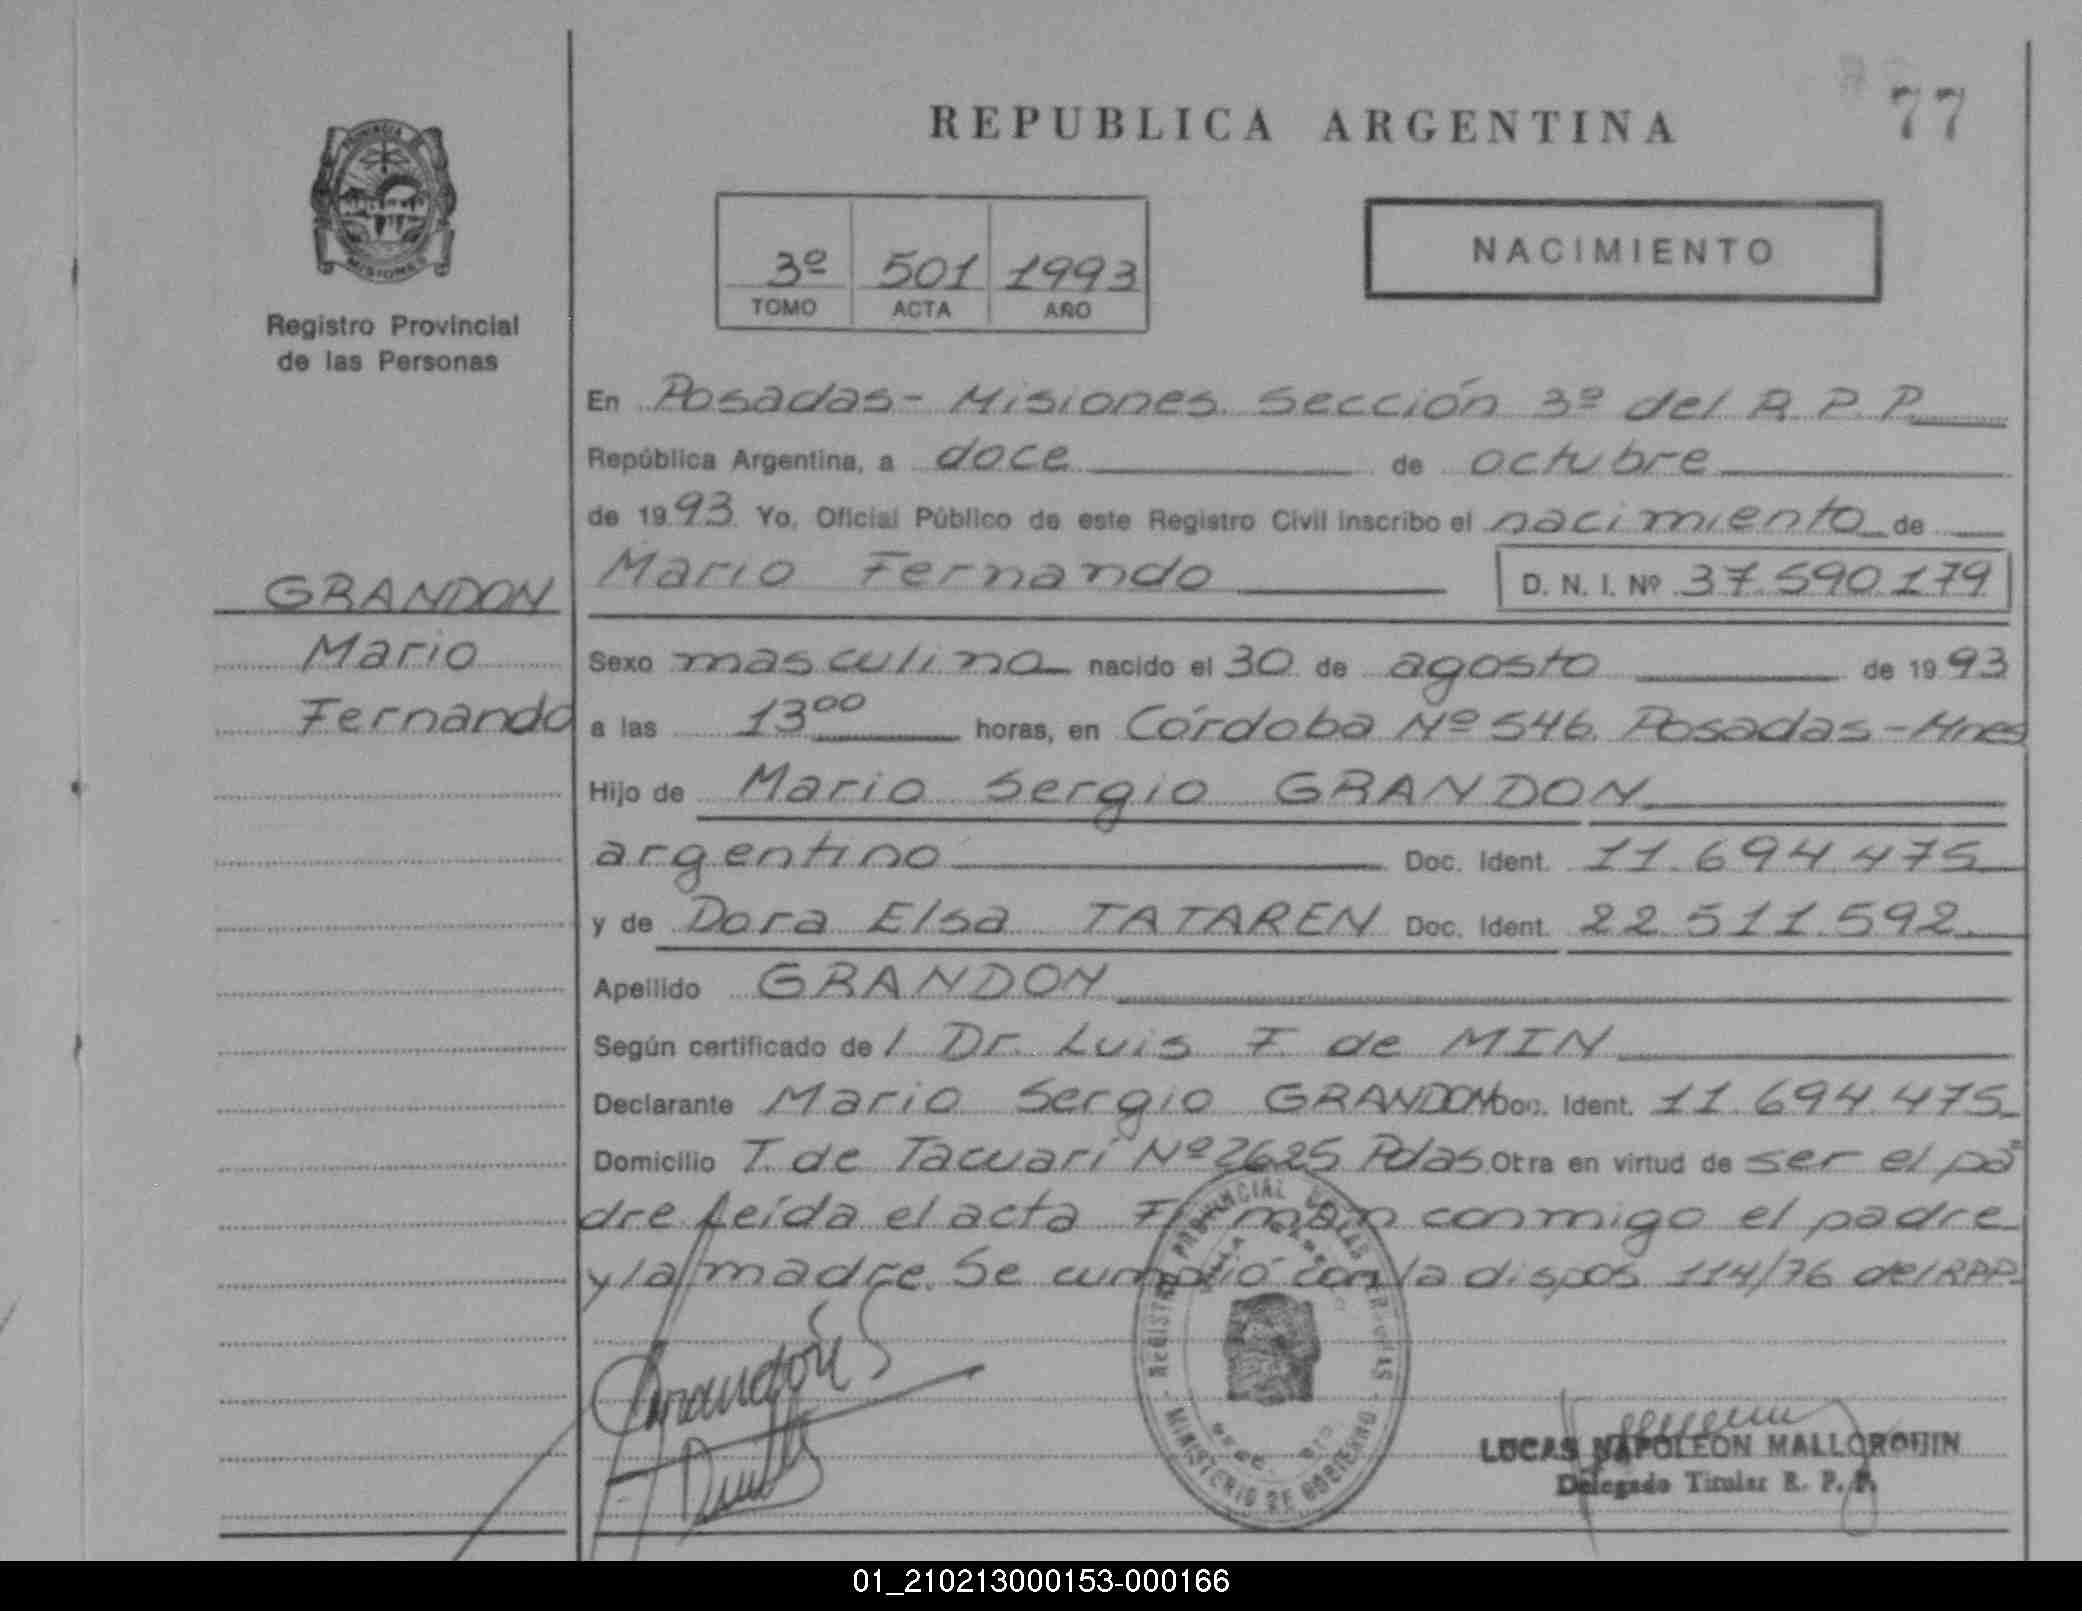 REPUBLICA ARGENTINA
77
PROVINCIA
MISIONES
Registro Provincial
de las Personas
3º 501 1993
TOMO ACTA AÑO
NACIMIENTO
En Posadas - Misiones Sección 3º del R.P.P.
República Argentina, a doce de octubre
de 1993 Yo, Oficial Público de este Registro Civil inscribo el nacimiento de
GRANDON
Mario
Fernando
Mario Fernando D. N. I. Nº 37.590.179
Sexo masculino nacido el 30 de agosto de 1993
a las 13⁰⁰ horas, en Córdoba Nº 546. Posadas - Mnes
Hijo de Mario Sergio GRANDON
argentino Doc. Ident. 11.694.475
y de Dora Elsa TATAREN Doc. Ident. 22.511.592.
Apellido GRANDON
Según certificado de l Dr. Luis F. de MIN
Declarante Mario Sergio GRANDON Doc. Ident. 11.694.475
Domicilio T. de Tacuarí Nº 2625 Pdas Otra en virtud de ser el pa
dre Leída el acta Firman conmigo el padre
y la madre. Se cumplió con la dispos 114/76 del RPP.
Grandón S
REGISTRO PROVINCIAL DE LAS PERSONAS
MINISTERIO DE GOBIERNO
LUCAS NAPOLEON MALLORQUIN
Delegado Titular R. P. P.
01_210213000153-000166